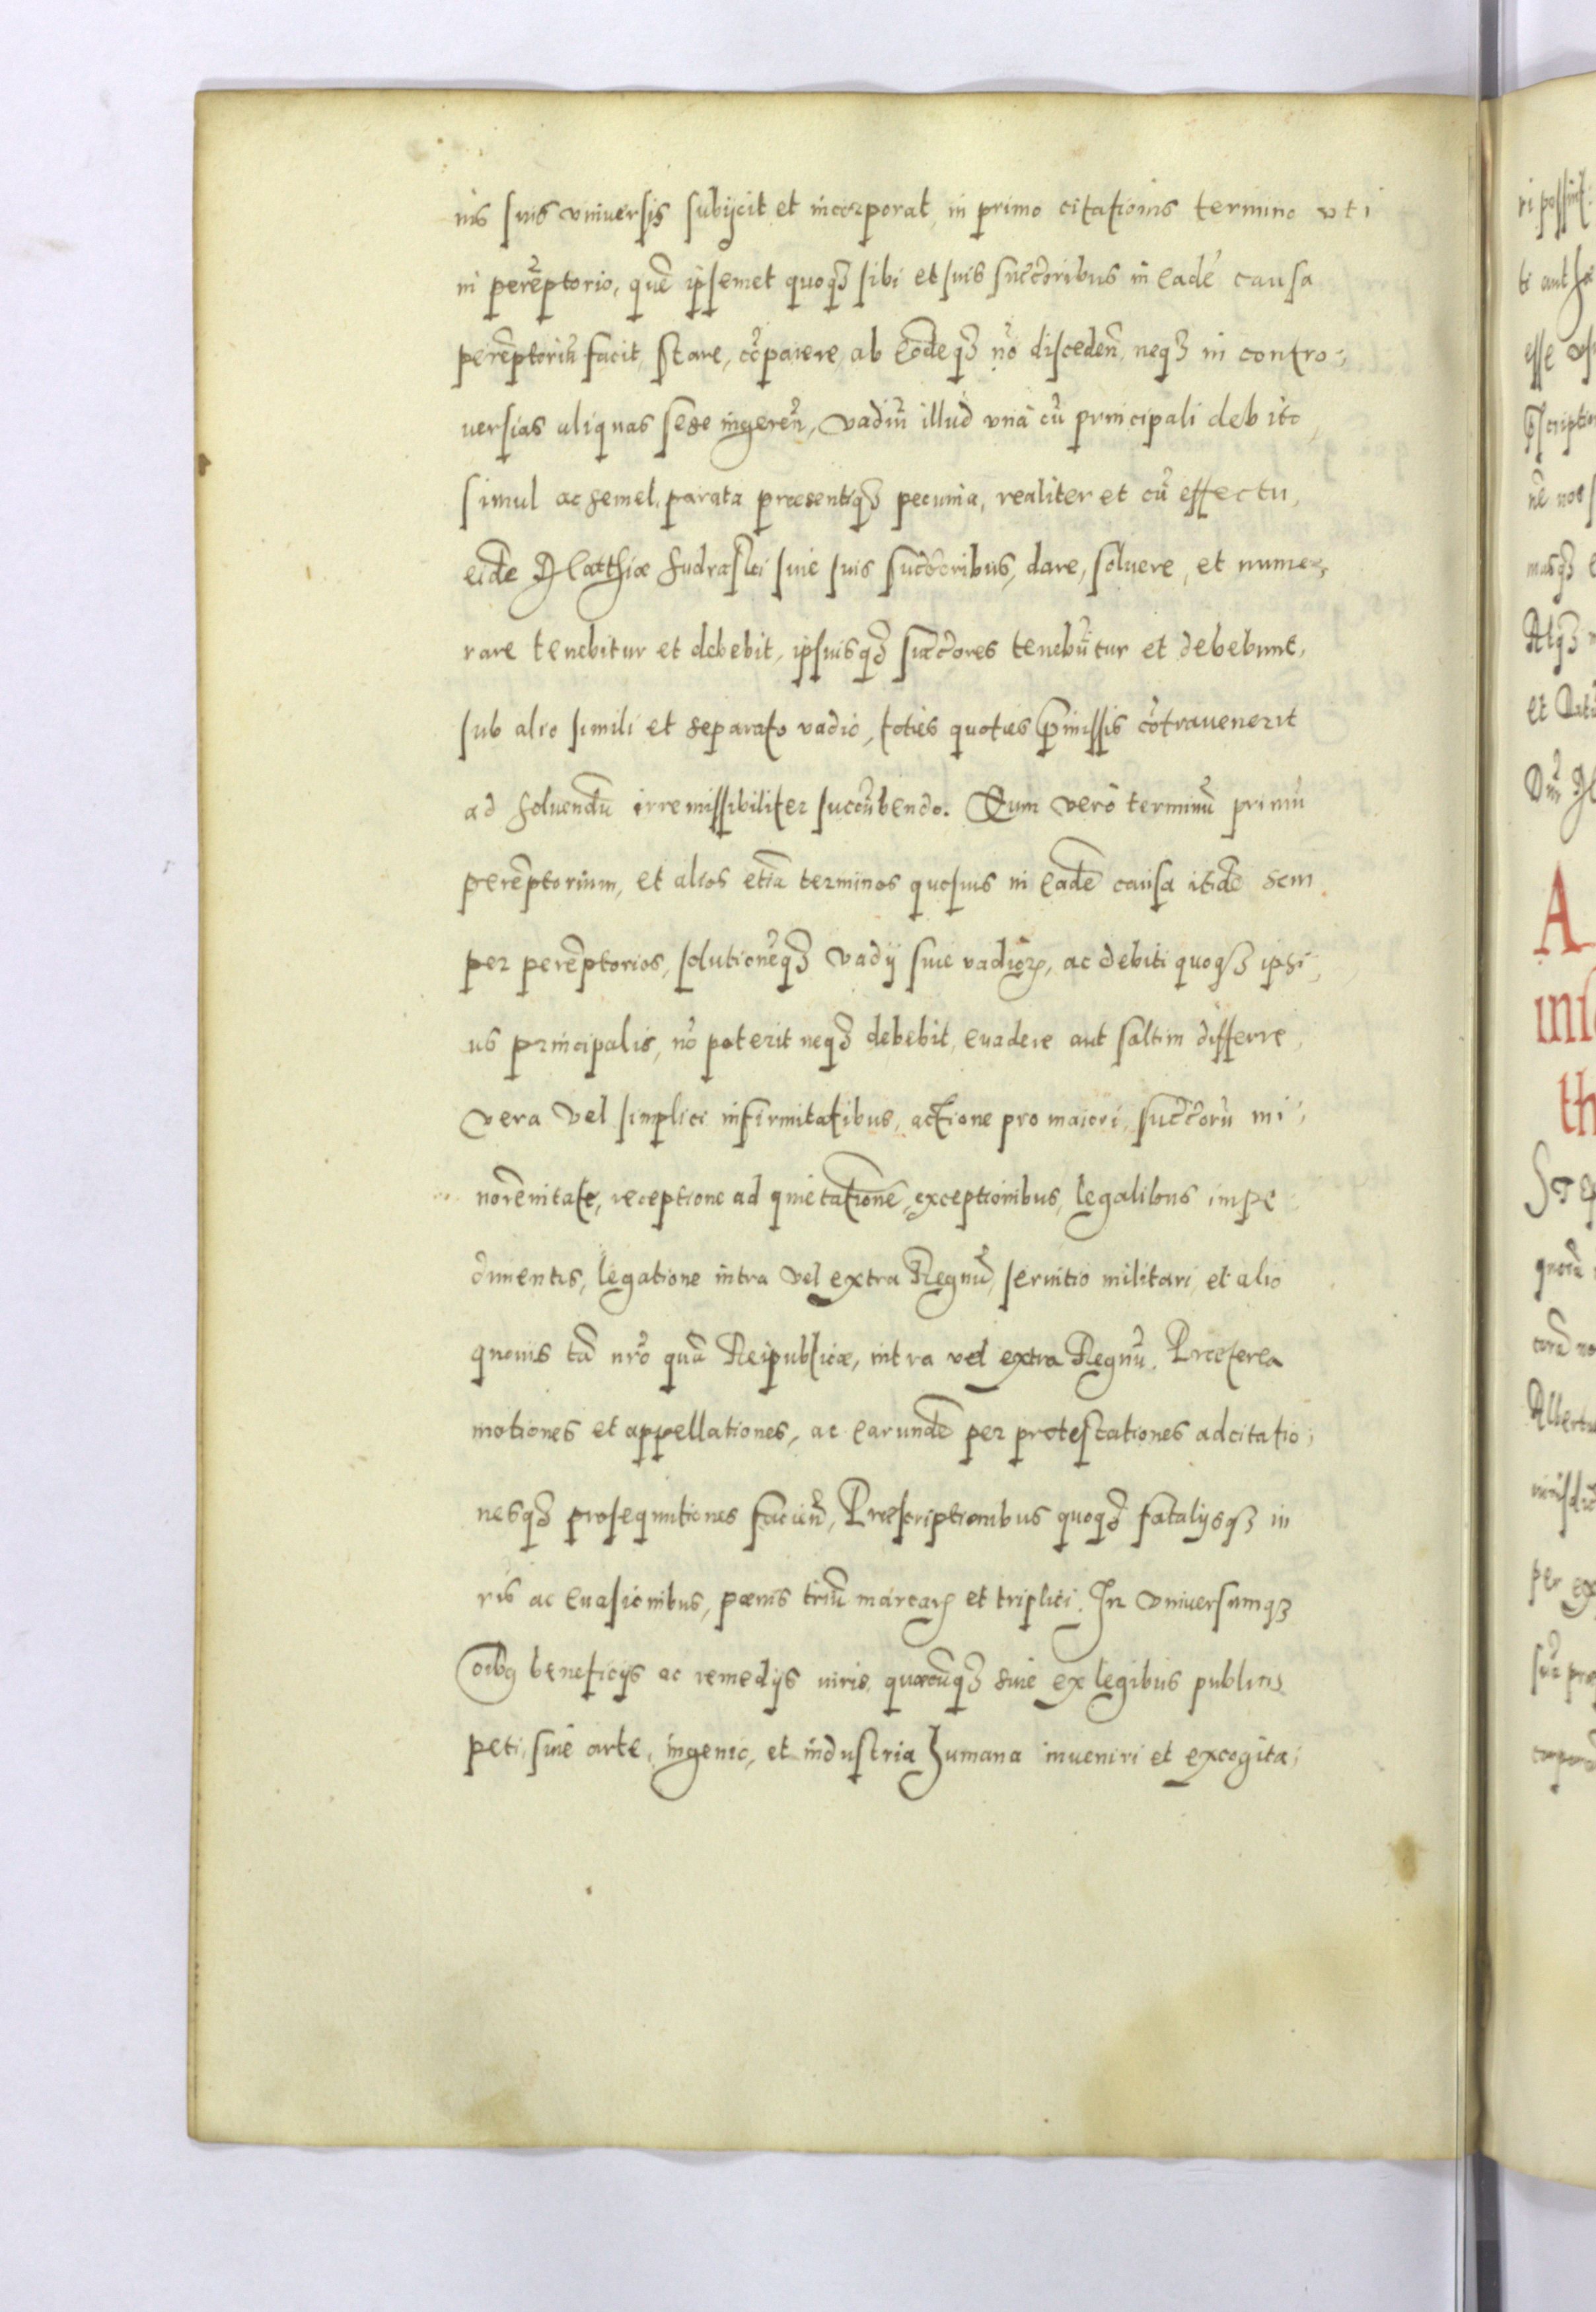 nis suis vniuersis subijcit et incorporat, in primo citationis termino vti
in perēptorio, quē ipsemet quoqꝫ sibi et suis succ̄oribus in eadē causa
perēptoriū facit, stare, cōparere, ab eōdeqꝫ nō disceden̄, neqꝫ in contro-
uersias aliquas sese ingeren̄, vadiū illud vnà cū principali debito,
simul ac semel, parata praesentiqꝫ pecunia, realiter et cū effectu,
eidē Matthiæ siue suis succ̄oribus, dare, soluere, et nume-
rare tenebitur et debebit, ipsiusqꝫ succ̄ores tenebūtur et debebunt,
sub alio simili et separato vadio, toties quoties p̄missis cōtrauenerit
ad soluendū irremissibiliter succūbendo. Quem verò terminū primū
perēptorium, et alios etiā terminos quosuis in eadē causa itidē sem
per perēptorios, solutionēqꝫ vadij siue vadioꝝ, ac debiti quoqꝫ ipsi-
us principalis, nō poterit neqꝫ debebit, euadere aut saltim differre,
vera vel simplici infirmitatibus, actione pro maiori, succ̄orū mi-
norēnitate, receptione ad quietationē, exceptionibus, legalibus impe
dimentis, legatione intra vel extra Regnū, seruitio militari, et alio
quouis tā nr̄o quā Reipublicæ, intra vel extra Regnū. Præterea
motiones et appellationes, ac earundē per protestationes adcitatio-
nesqꝫ prosequutiones facien̄, Præscriptionibus quoqꝫ fatalijsqꝫ iu
ris ac euasionibus, pœnis triū marcaꝝ et triplici. In vniversumqꝫ
oībꝯ beneficijs ac remedijs iuris, quæcūqꝫ siue ex legibus publicis
peti, siue arte, ingenio, et industria humana inueniri et excogita-